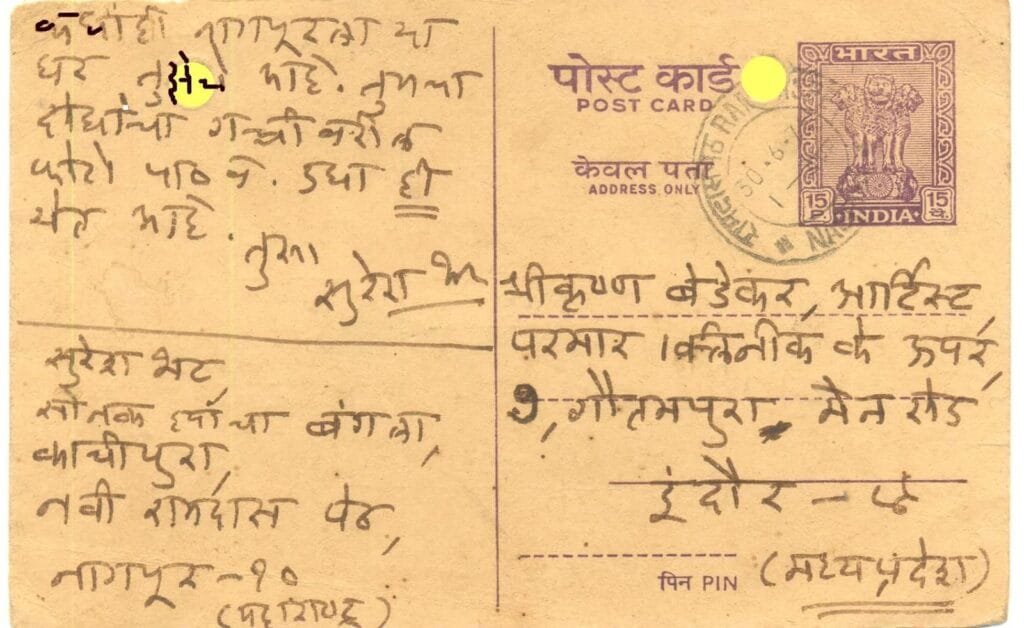 कधीही नागपूरला या
घर तुझेच आहे. तुमचा
दोघांचा गच्चीवरील
फोटो पाठव. उषा ही
येत आहे.
तुझा
सुरेश भट
सुरेश भट,
सोनक ह्यांचा बंगला,
काचीपुरा,
नवी रामदास पेठ,
नागपूर-१०
(महाराष्ट्र)
पोस्ट कार्ड
POST CARD
केवल पता
ADDRESS ONLY
भारत
15 P
INDIA
15 पै.
30-6-
श्रीकृष्ण बेडेकर, आर्टिस्ट,
परमार क्लिनीक के ऊपर,
७, गौतमपुरा, मेन रोड
इंदौर -
(मध्यप्रदेश)
पिन PIN